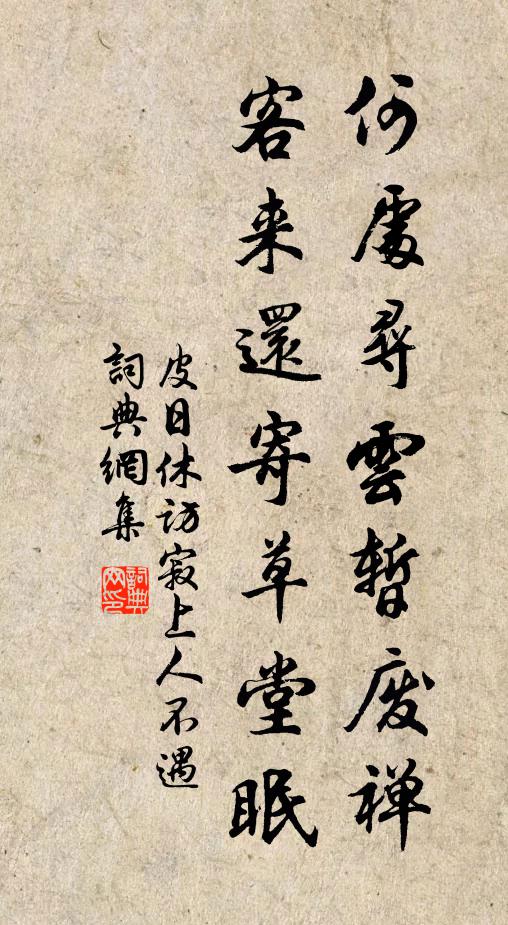 何處尋雲暫廢禪
客来還寄草堂眠
皮日休訪寂上人不遇
詞典網集
詞典
网印